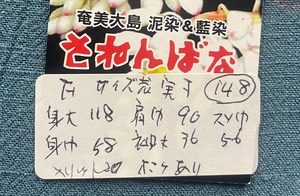 奄美大島 泥染&藍染
それんばな
F サイズ 実寸 148
身丈 118 肩巾 90 スソ巾
身巾 58 袖丈 36 56
ポケあり